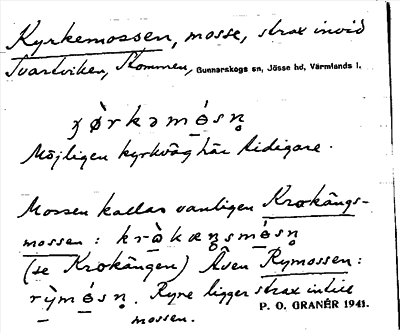 Kyrkemossen, mosse, strax invid
Svartviken, Stommen, Gunnarskogs sn, Jösse hd, Värmlands l.
Möjligen kyrkväg här tidigare.
Mossen kallas vanligen Krokängs-
mossen: 
(se Krokängen) Även Rymossen:
Ryne ligger strax intill
mossen.
P. O. GRANÉR 1941.